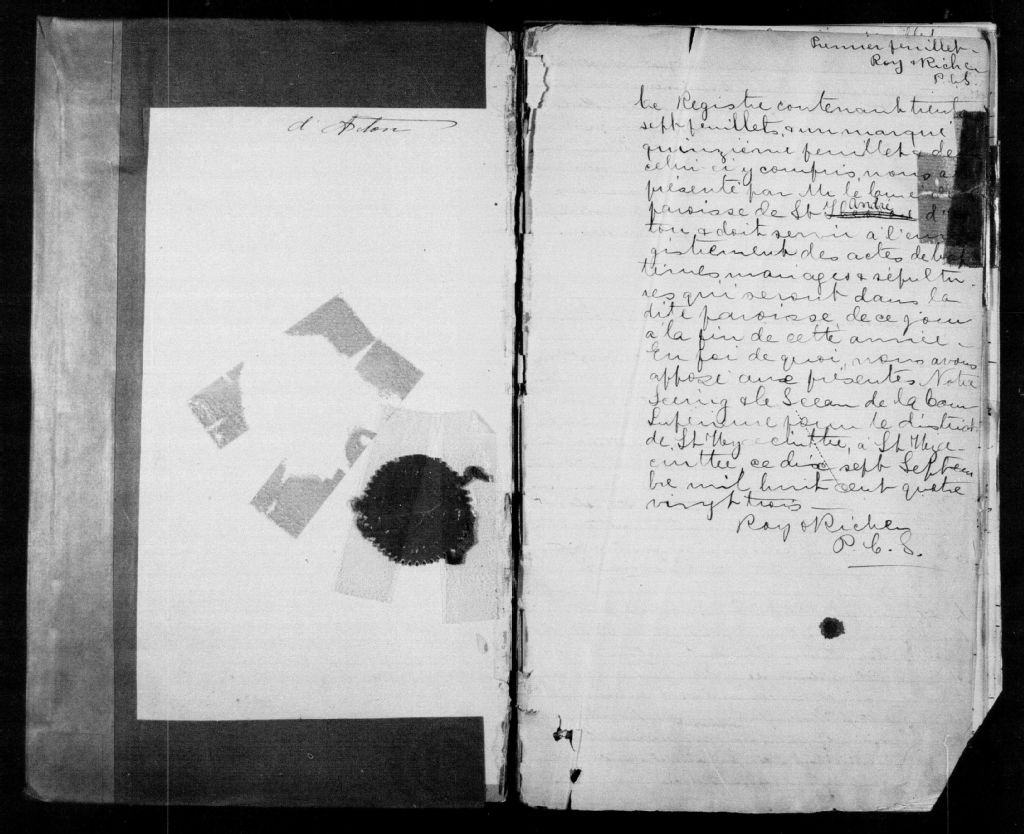 d'Acton
Premier feuillet.
Roy & Richer
P.C.S.
Ce Registre contenant trente
sept feuillets, & un marque
quinzième feuillet & de
celui ci y compris, nous a
présenté par Mr le Curé
paroisse de St André d'Ac
ton & doit servir à l'enre
gistrement des actes de bap
têmes, mariages & sépultu-
res qui seront dans la
dite paroisse de ce jour
à la fin de cette année.
En foi de quoi, nous avons
apposé aux présentes Notre
Seing & le Sceau de la Cour
Supérieure pour le district
de St Hyacinthe, à St Hya-
cinthe, ce dix sept Septem
bre mil huit cent quatre
vingt trois —
Roy & Richer
P. C. S.